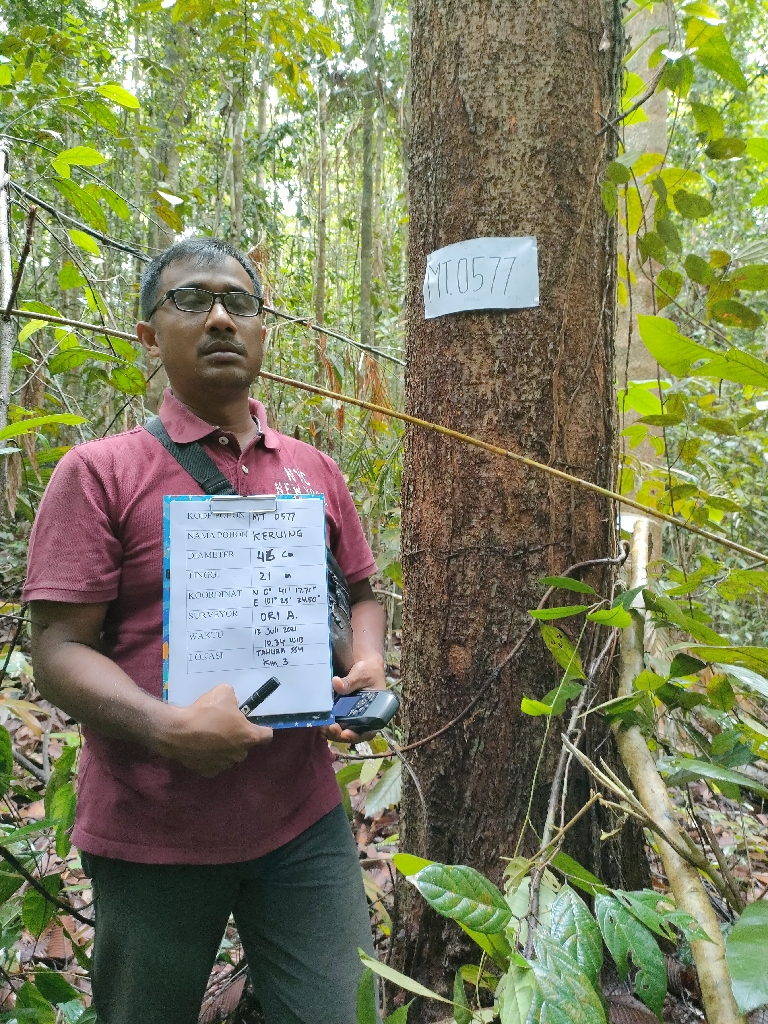 MT.0577
NYC
NEW YO
KODE POHON MT 0577
NAMA POHON KERUING
DIAMETER 46 Cm
TINGGI 21 m
KOORDINAT N 0° 41' 17.71"
E 101° 25' 24.50"
SURVEYOR ORI A.
WAKTU 13 Juli 2021
10.34 WIB
LOKASI TAHURA SSH
Km 3